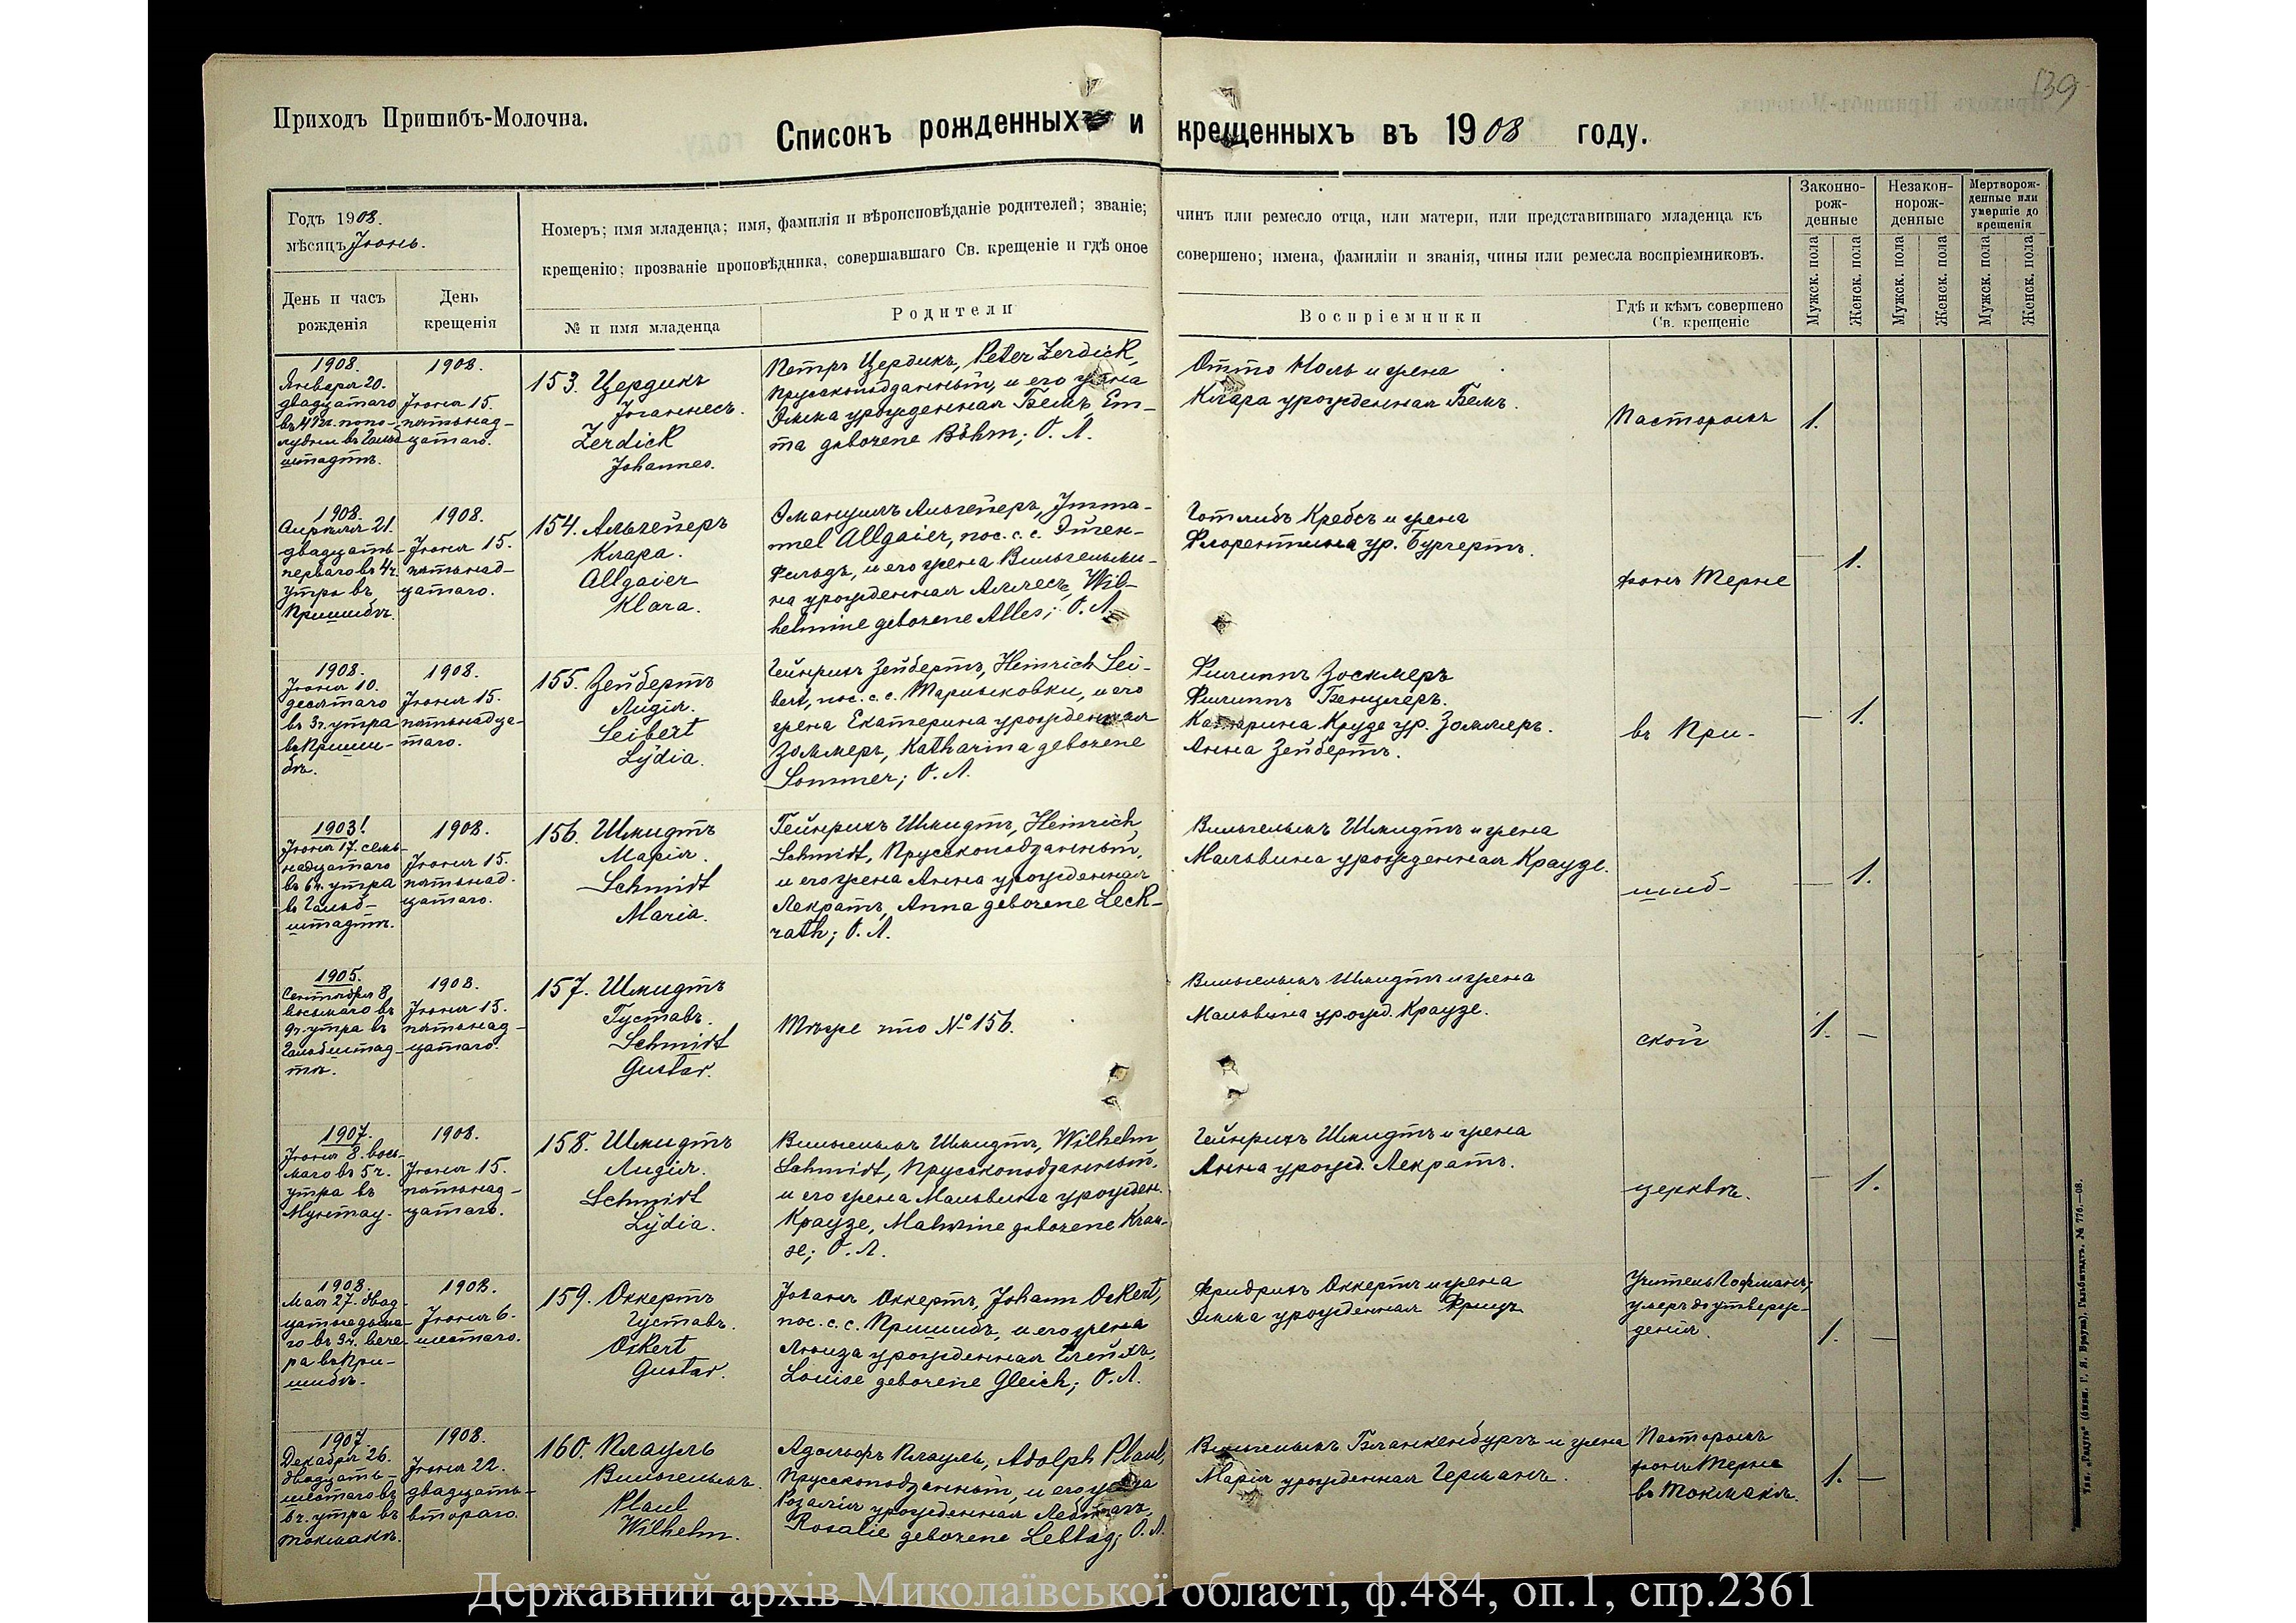 139
Приходъ Пришибъ-Молочна.
Списокъ рожденныхъ и крещенныхъ въ 1908 году.
Годъ 1908.
мѣсяцъ Іюнь.
Номеръ; имя младенца; имя, фамилія и вѣроисповѣданіе родителей; званіе;
крещенію; прозваніе проповѣдника, совершавшаго Св. крещеніе и гдѣ оное
чинъ или ремесло отца, или матери, или представившаго младенца къ
совершено; имена, фамиліи и званія, чины или ремесла воспріемниковъ.
Законно-
рож-
денные
Незакон-
норож-
денные
Мертворож-
денные или
умершіе до
крещенія
День и часъ
рожденія
День
крещенія
№ и имя младенца
Родители
Воспріемники
Гдѣ и кѣмъ совершено
Св. крещеніе
Мужск. пола
Женск. пола
Мужск. пола
Женск. пола
Мужск. пола
Женск. пола
1908.
Января 20.
двадцатаго
въ 4 ч. попо-
лудни въ Гальб-
штадтѣ.
1908.
Іюня 15.
пятьнад-
цатаго.
153. Цердикъ
Іоганнесъ.
Zerdick
Johannes.
Петръ Цердикъ, Peter Zerdick,
Прусскоподданный, и его жена
Эмма урожденная Бемъ, Em-
ma geborene Böhm; О. Л.
Отто Ноль и жена
Клара урожденная Бемъ.
Пасторомъ
1.
1908.
Апрѣля 21.
двадцать-
перваго въ 4 ч.
утра въ
Пришибѣ.
1908.
Іюня 15.
пятьнад-
цатаго.
154. Альгейеръ
Клара.
Allgaier
Klara.
Эмануилъ Альгейеръ, Imma-
nuel Allgaier, пос. с. с. Эйген-
фельдъ, и его жена Вильгельми-
на урожденная Аллесъ, Wil-
helmine geborene Alles; О. Л.
Готлибъ Кребсъ и жена
Флорентина ур. Бургертъ.
фонъ Терне
— 1.
1908.
Іюня 10.
десятаго
въ 3 ч. утра
въ Приши-
бѣ.
1908.
Іюня 15.
пятьнадца-
таго.
155. Зейбертъ
Лидія.
Seibert
Lydia.
Гейнрихъ Зейбертъ, Heinrich Sei-
bert, пос. с. с. Карльсковки, и его
жена Екатерина урожденная
Зоммеръ, Katharina geborene
Sommer; О. Л.
Филиппъ Зоммеръ
Филиппъ Бенцлеръ.
Катарина Крузе ур. Зоммеръ.
Анна Зейбертъ.
въ При-
— 1.
1903!
Іюня 17. семь-
надцатаго
въ 6 ч. утра
въ Гальб-
штадтѣ.
1908.
Іюня 15.
пятьнад-
цатаго.
156. Шмидтъ
Марія.
Schmidt
Maria.
Гейнрихъ Шмидтъ, Heinrich
Schmidt, Прусскоподданный,
и его жена Анна урожденная
Лекратъ, Anna geborene Leck-
rath; О. Л.
Вильгельмъ Шмидтъ и жена
Мальвина урожденная Краузе.
шиб-
— 1.
1905.
Сентября 8
восьмаго въ
9 ч. утра въ
Гальбштад-
тѣ.
1908.
Іюня 15.
пятьнад-
цатаго.
157. Шмидтъ
Густавъ.
Schmidt
Gustav.
Тѣже что № 156.
Вильгельмъ Шмидтъ и жена
Мальвина урожд. Краузе.
ской
1. —
1907.
Іюня 8. вось-
маго въ 5 ч.
утра въ
Мунтау.
1908.
Іюня 15.
пятьнад-
цатаго.
158. Шмидтъ
Лидія.
Schmidt
Lydia.
Вильгельмъ Шмидтъ, Wilhelm
Schmidt, Прусскоподданный,
и его жена Мальвина урожден.
Краузе, Malwine geborene Krau-
se; О. Л.
Гейнрихъ Шмидтъ и жена
Анна урожд. Лекратъ.
церквѣ.
— 1.
1908.
Мая 27. двад-
цатьседьма-
го въ 9 ч. вече-
ра въ При-
шибѣ.
1908.
Іюня 6.
шестаго.
159. Оккертъ
Густавъ.
Ockert
Gustav.
Іоганъ Оккертъ, Johann Ockert,
пос. с. с. Пришибъ, и его жена
Луиза урожденная Глейхъ,
Louise geborene Gleich; О. Л.
Фридрихъ Оккертъ и жена
Эмма урожденная Фрицъ
Учитель Гофманъ;
умеръ до утверж-
денія.
1. —
1907.
Декабря 26.
двадцать-
шестаго въ
6 ч. утра въ
Токмакѣ.
1908.
Іюня 22.
двадцать-
втораго.
160. Плауль
Вильгельмъ.
Plaul
Wilhelm.
Адольфъ Плауль, Adolph Plaul,
Прусскоподданный, и его жена
Розалія урожденная Лебтагъ,
Rosalie geborene Lebtag; О. Л.
Вильгельмъ Бланкенбургъ и жена
Марія урожденная Германъ.
Пасторомъ
фонъ Терне
въ Токмакѣ.
1. —
Тип. „Радуга“ (бывш. Г. Я. Брауна), Гальбштадтъ. № 776.—08.
Державний архів Миколаївської області, ф.484, оп.1, спр.2361